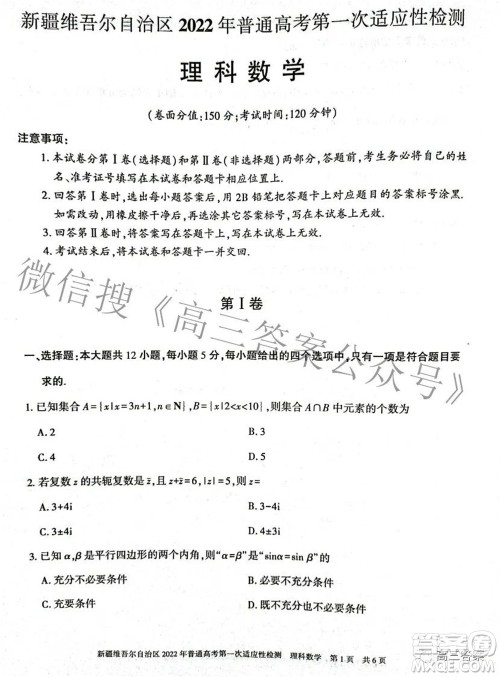 新疆维吾尔自治区 2022 年普通高考第一次适应性检测
理科数学
(卷面分值:150 分;考试时间:120 分钟)
注意事项:
1. 本试卷分第Ⅰ卷(选择题)和第Ⅱ卷(非选择题)两部分,答题前,考生务必将自己的姓
名、准考证号填写在答题卡上相应位置.
2. 回答第Ⅰ卷时,选出每小题答案后,用 2B 铅笔把答题卡上对应题目的答案标号涂黑.
如需改动,用橡皮擦干净后,再填写其它答案标号.写在本试卷上无效.
3. 回答第Ⅱ卷时,将答案写在答题卡上,写在本试卷上无效.
4. 考试结束后,将本试卷和答题卡一并交回.
微信搜《高三答案公众号》
第Ⅰ卷
一、选择题:本大题共 12 小题,每小题 5 分,每小题给出的四个选项中,只有一项是符合题目要
求的.
1. 已知集合 A={x|x=3n+1,n∈N},B={x|2<x<10},则集合 A∩B 中元素的个数为
A. 2 B. 3
C. 4 D. 5
2. 若复数 z 的共轭复数是 z̄,且 z+z̄=6,|z|=5,则 z=
A. 3+4i B. 3-4i
C. 3±4i D. 4±3i
3. 已知 α,β是平行四边形的两个内角,则"α=β"是"sinα=sinβ"的
A. 充分不必要条件 B. 必要不充分条件
C. 充要条件 D. 既不充分也不必要条件
新疆维吾尔自治区 2022 年普通高考第一次适应性检测 理科数学 第 1 页 共 6 页
高三答案